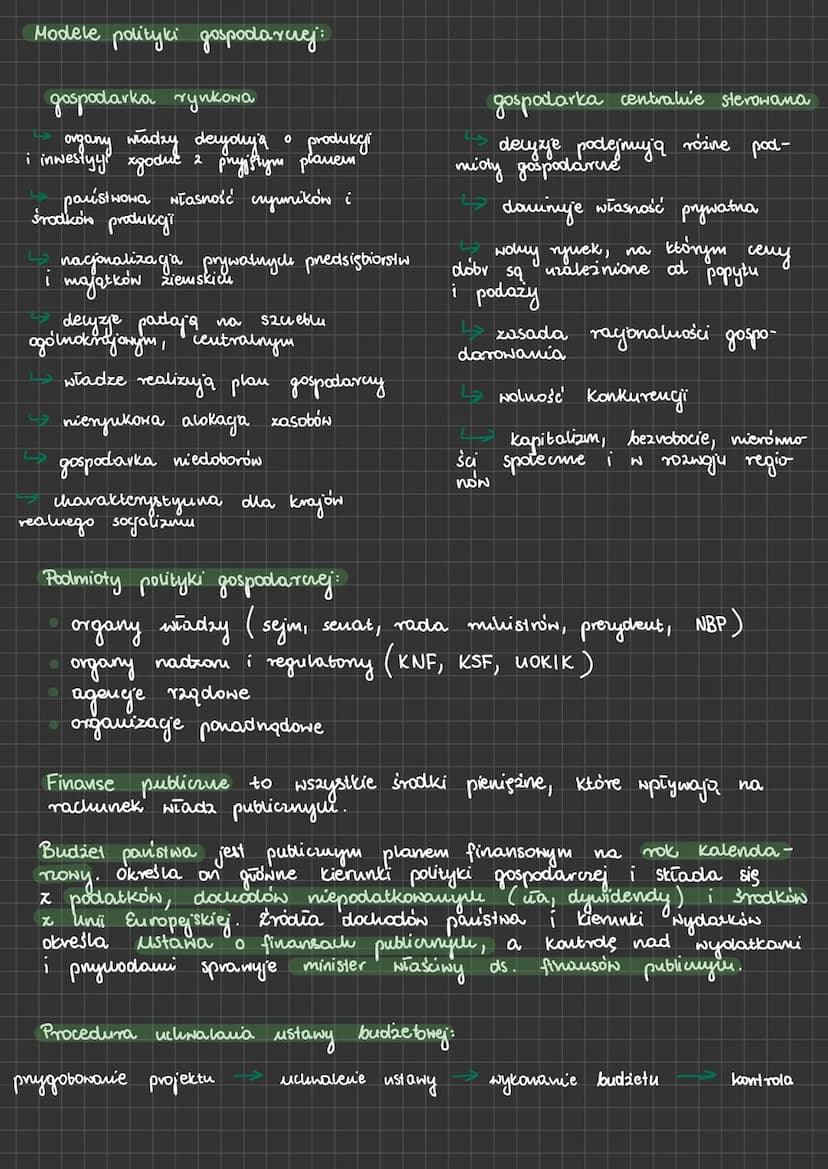 Modele polityki gospodarczej:
gospodarka rynkowa
↳ organy władzy decydują o produkcji
i inwestycji zgodnie z przyjętym planem
↳ państwowa własność czynników i
środków produkcji
↳ nacjonalizacja prywatnych przedsiębiorstw
i majątków ziemskich
↳ decyzje padają na szczeblu
ogólnokrajowym, centralnym
↳ władze realizują plan gospodarczy
↳ nierynkowa alokacja zasobów
↳ gospodarka niedoborów
→ charakterystyczna dla krajów
realnego socjalizmu
gospodarka centralnie sterowana
↳ decyzje podejmują różne pod-
mioty gospodarcze
↳ dominuje własność prywatna
↳ wolny rynek, na którym ceny
dóbr są uzależnione od popytu
i podaży
↳ zasada racjonalności gospo-
darowania
↳ wolność konkurencji
↳ kapitalizm, bezrobocie, nierówno-
ści społeczne i w rozwoju regio-
nów
Podmioty polityki gospodarczej:
• organy władzy (sejm, senat, rada ministrów, prezydent, NBP)
• organy nadzoru i regulatory (KNF, KSF, UOKIK)
• agencje rządowe
• organizacje ponadrządowe
Finanse publiczne to wszystkie środki pieniężne, które wpływają na
rachunek władz publicznych.
Budżet państwa jest publicznym planem finansowym na rok kalenda-
rzowy. Określa on główne kierunki polityki gospodarczej i składa się
z podatków, dochodów niepodatkowanych (cła, dywidendy) i środków
z Unii Europejskiej. Źródła dochodów państwa i kierunki wydatków
określa Ustawa o finansach publicznych, a kontrolę nad wydatkami
i przychodami sprawuje minister właściwy ds. finansów publicznych.
Procedura uchwalania ustawy budżetowej:
przygotowanie projektu → uchwalenie ustawy → wykonanie budżetu → kontrola